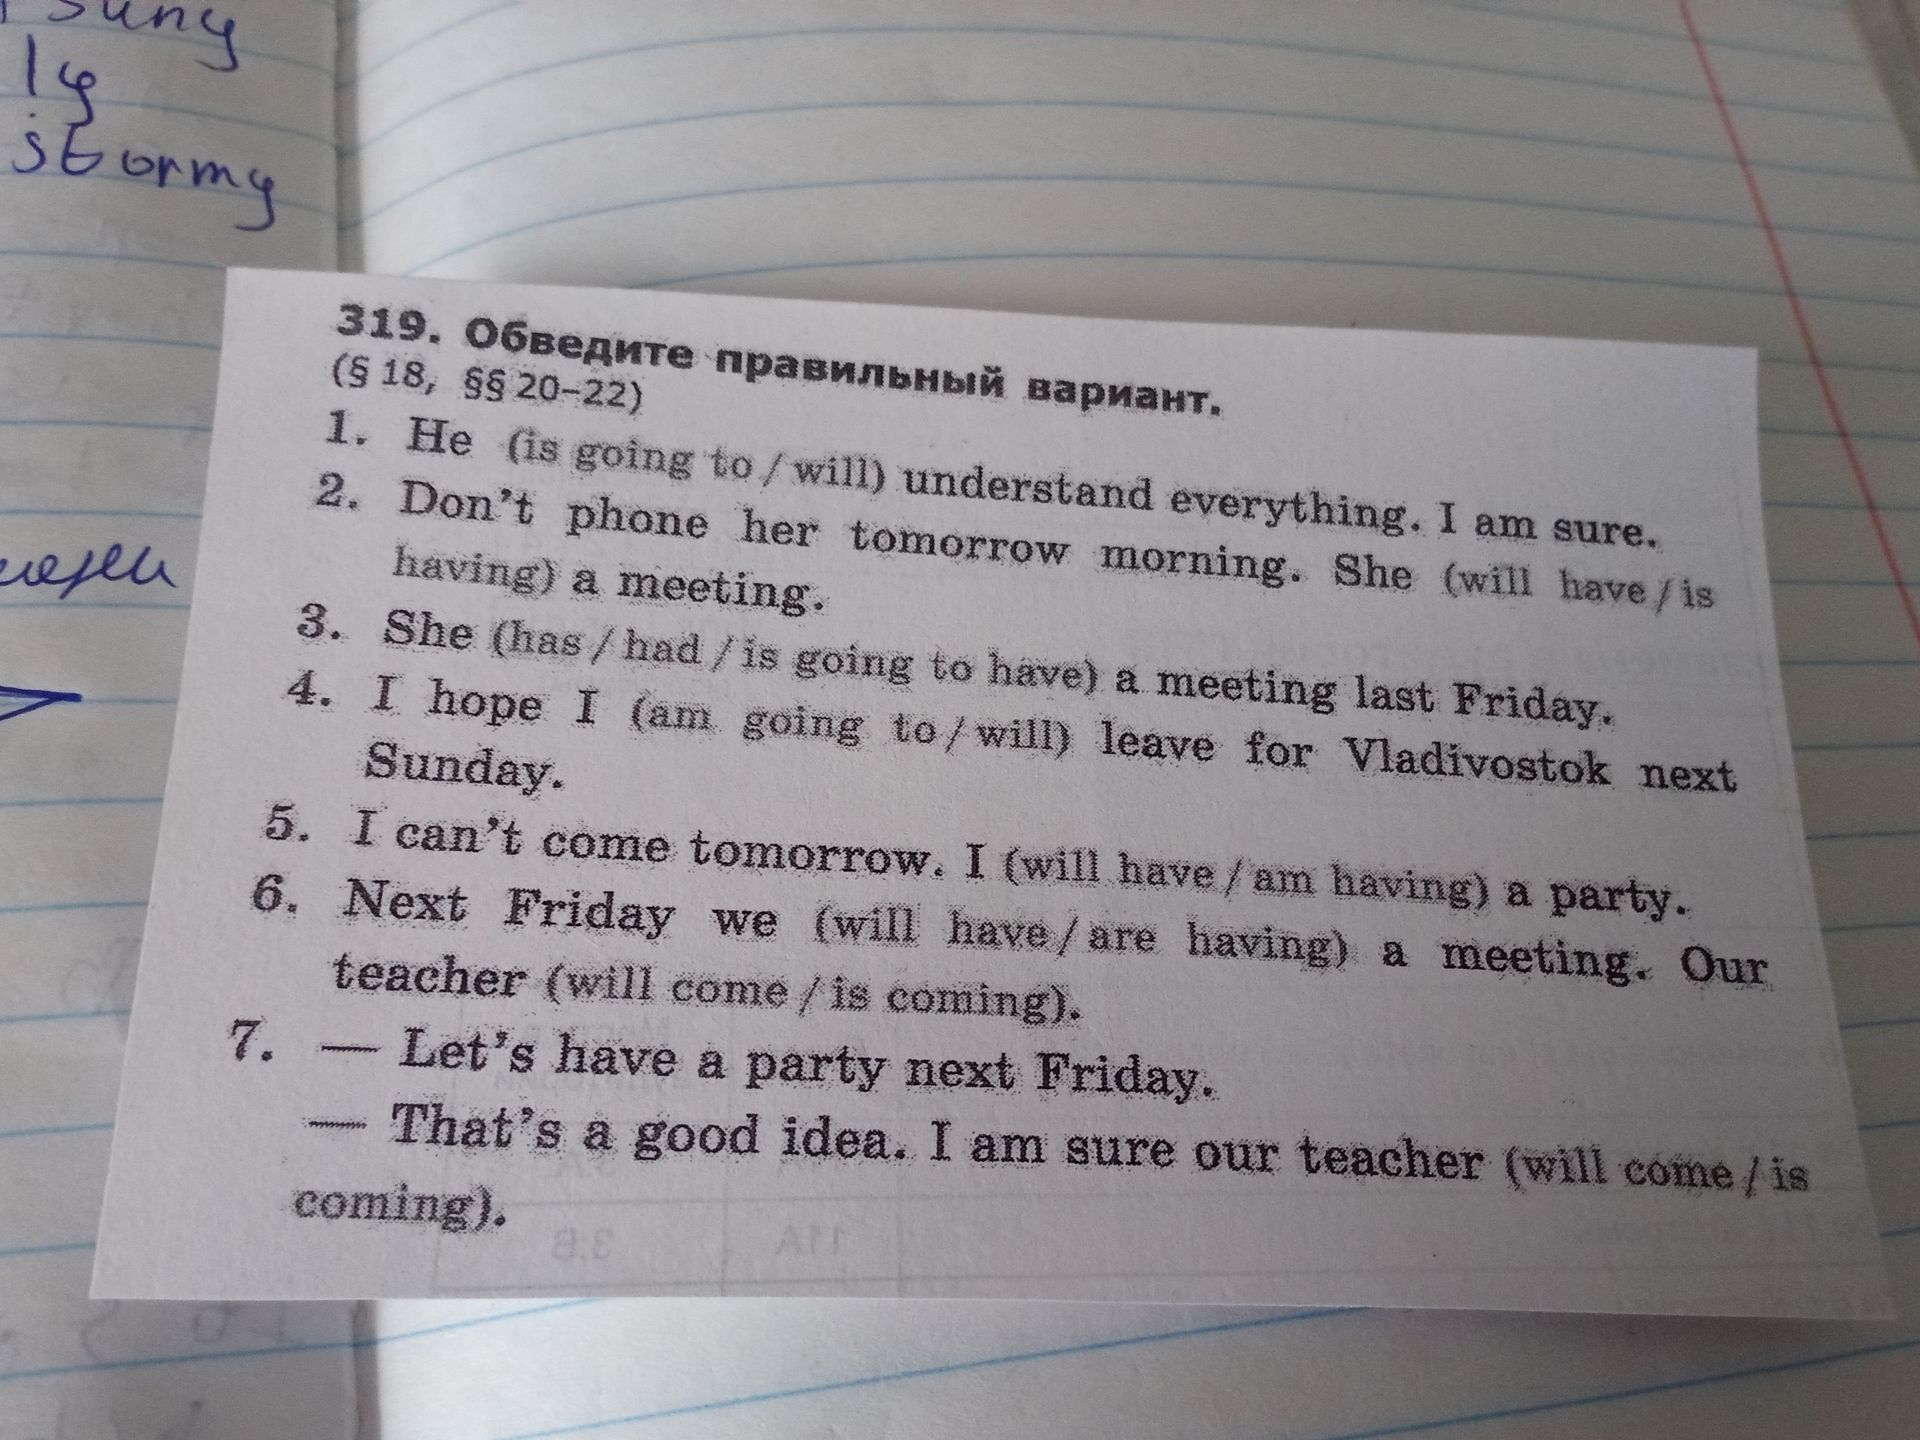 suny
ly
stormy
319. Обведите правильный вариант.
(§ 18, §§ 20–22)
1. He (is going to / will) understand everything. I am sure.
2. Don't phone her tomorrow morning. She (will have / is
having) a meeting.
3. She (has / had / is going to have) a meeting last Friday.
4. I hope I (am going to / will) leave for Vladivostok next
Sunday.
5. I can't come tomorrow. I (will have / am having) a party.
6. Next Friday we (will have / are having) a meeting. Our
teacher (will come / is coming).
7. — Let's have a party next Friday.
— That's a good idea. I am sure our teacher (will come / is
coming).
3.B 11A